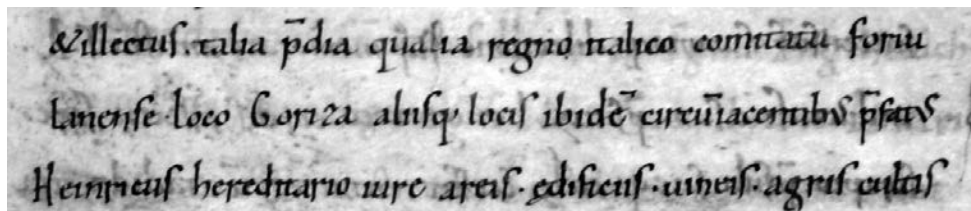 &illectus. talia p̄dia qualia regno italico comitatu foriu
lanense loco Goriza aliisq; locis ibidē circūiacentibus p̄fatus
Heinricus hereditario iure areis. ędificiis. uineis. agris cultis